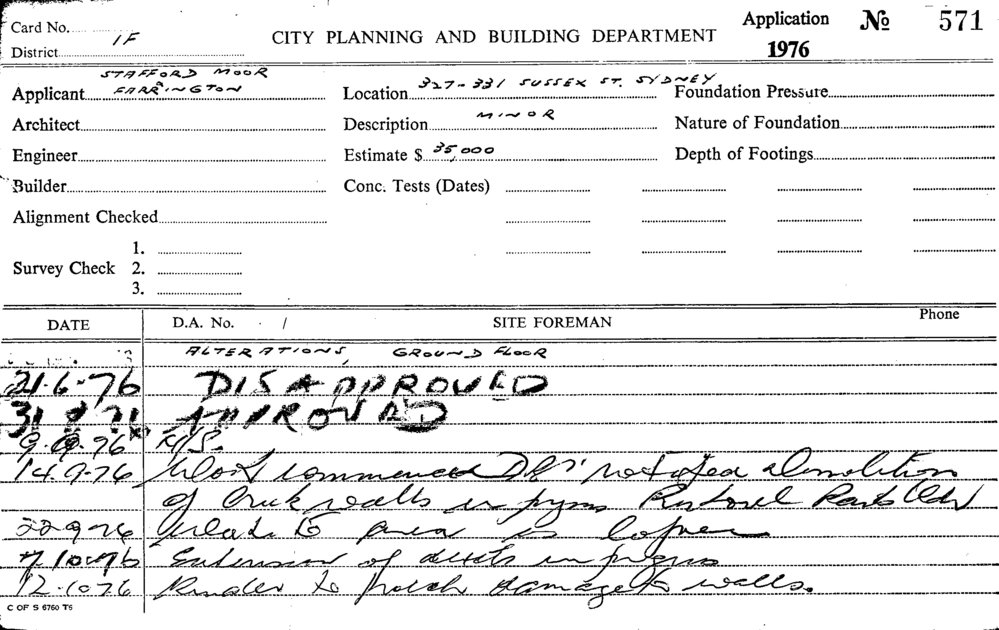 Card No. 1F Application № 571
CITY PLANNING AND BUILDING DEPARTMENT
District 1976
STAFFORD MOOR
Applicant FARRINGTON Location 327-331 SUSSEX ST. SYDNEY Foundation Pressure
Architect Description MINOR Nature of Foundation
Engineer Estimate $ 35,000 Depth of Footings
Builder Conc. Tests (Dates)
Alignment Checked
1.
Survey Check 2.
3.
DATE D.A. No. / SITE FOREMAN Phone
ALTERATIONS, GROUND FLOOR
21-6-76 DISAPPROVED
31 APPROVED
9-9-76
14.9.76 Work commenced demolition
of brick walls in
22-9-76 area is
7.10.76 Extension of ducts in progress
12.10.76 Render to patch damage to walls.
C OF S 6760 T6